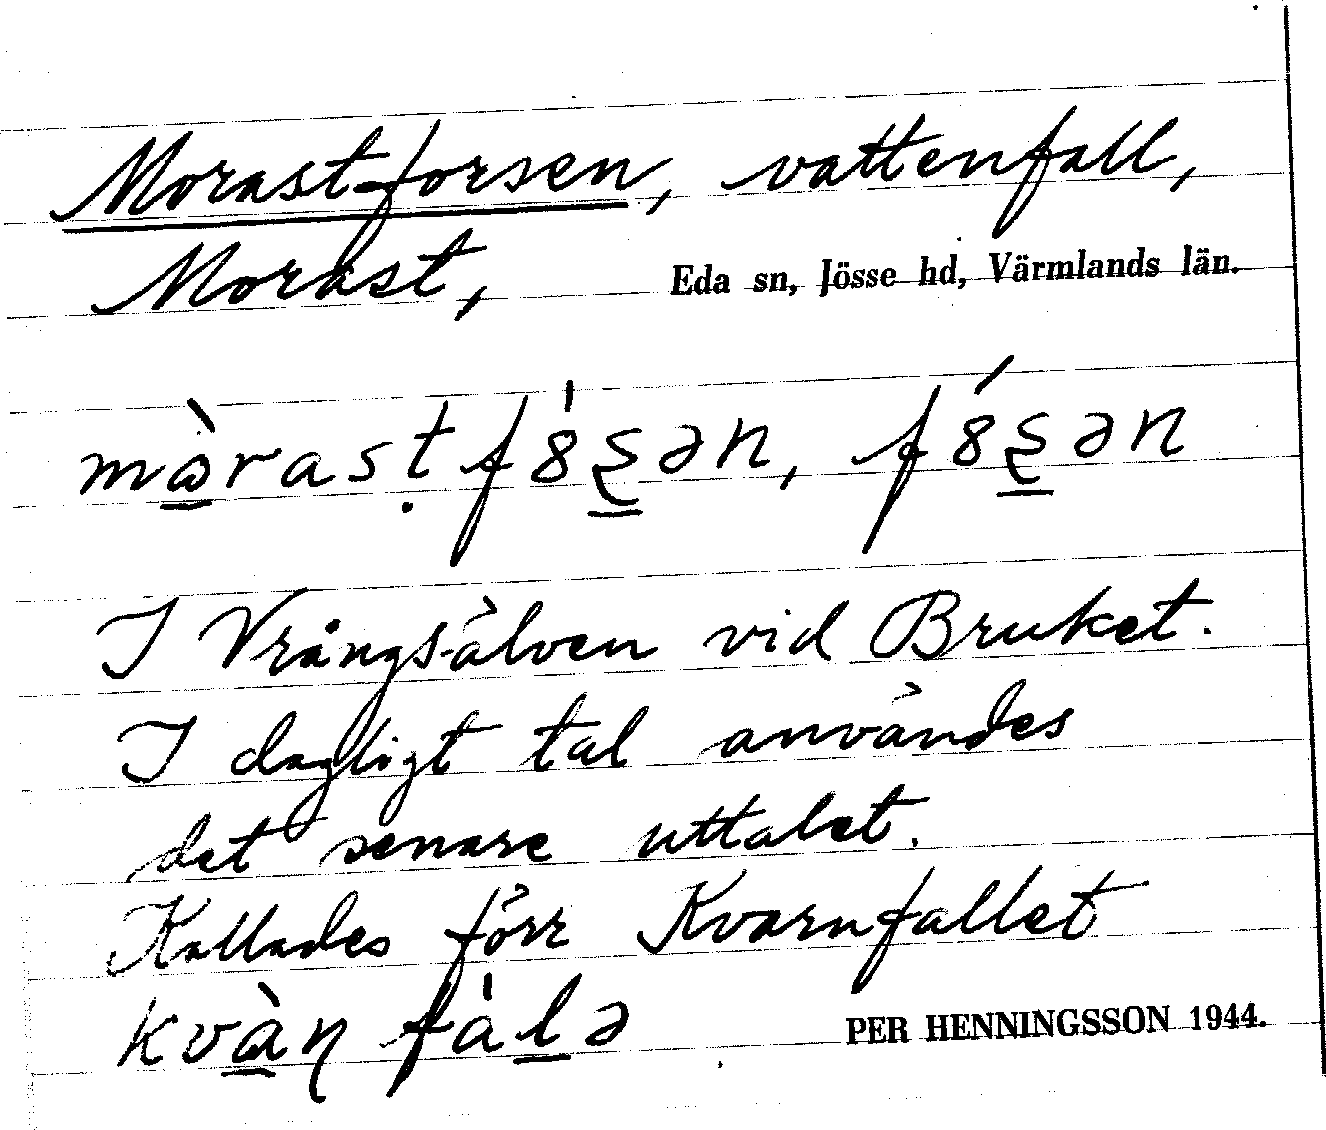 Morastforsen, vattenfall,
Morast, Eda sn, Jösse hd, Värmlands län.
mòrasṭfó̱ʂən, fó̱ʂən
I Vrångsälven vid Bruket.
I dagligt tal användes
det senare uttalet.
Kallades förr Kvarnfallet
kvàɳfàlə PER HENNINGSSON 1944.